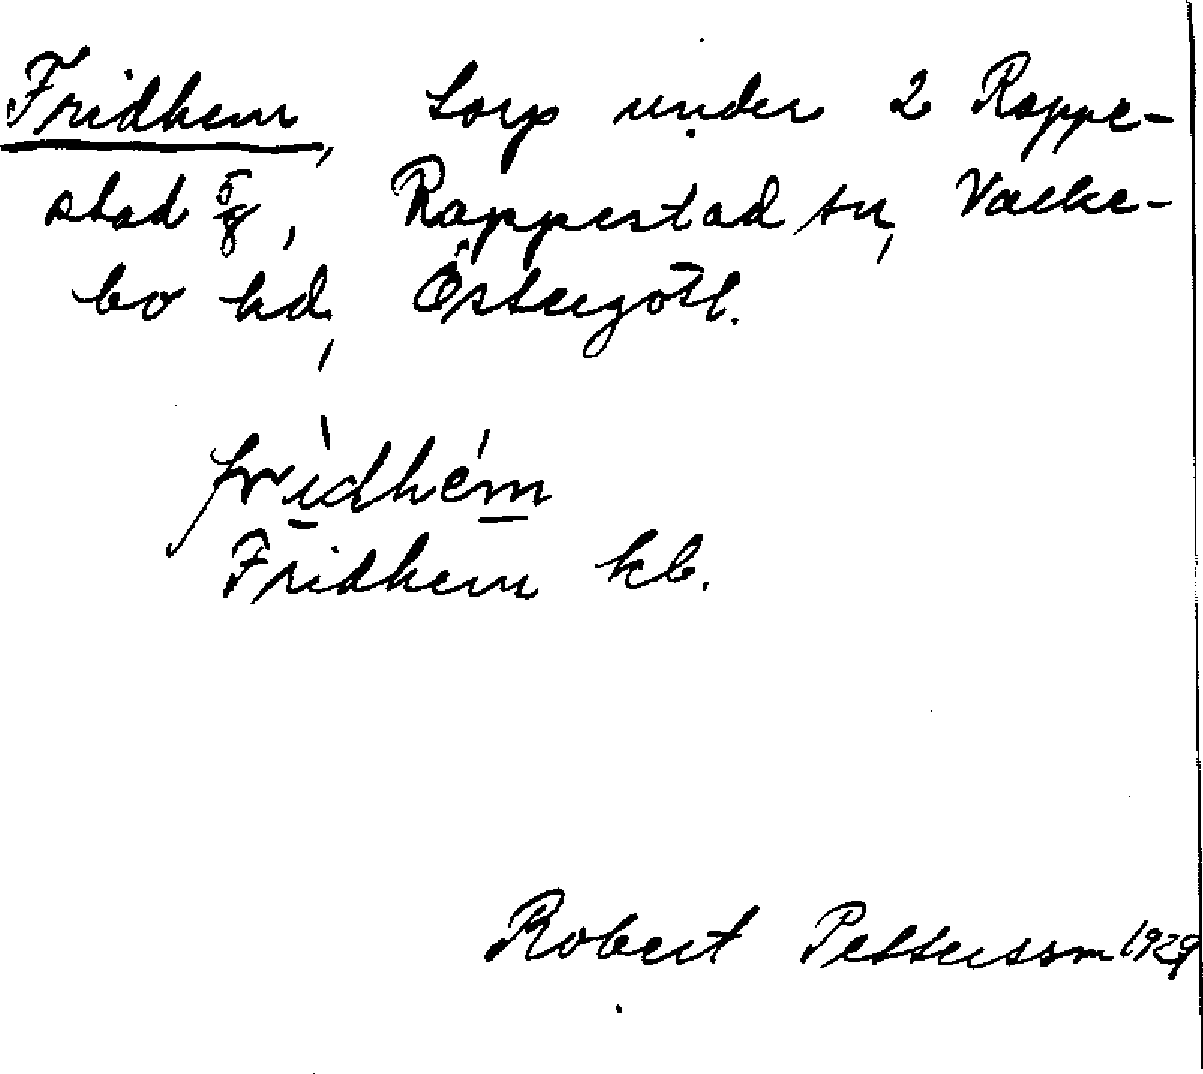 Fridhem, torp under 2 Rappe-
stad 5/8, Rappestad sn, Valke-
bo hd, Östergötl.
frìdhém
Fridhem kb.
Robert Pettersson 1929